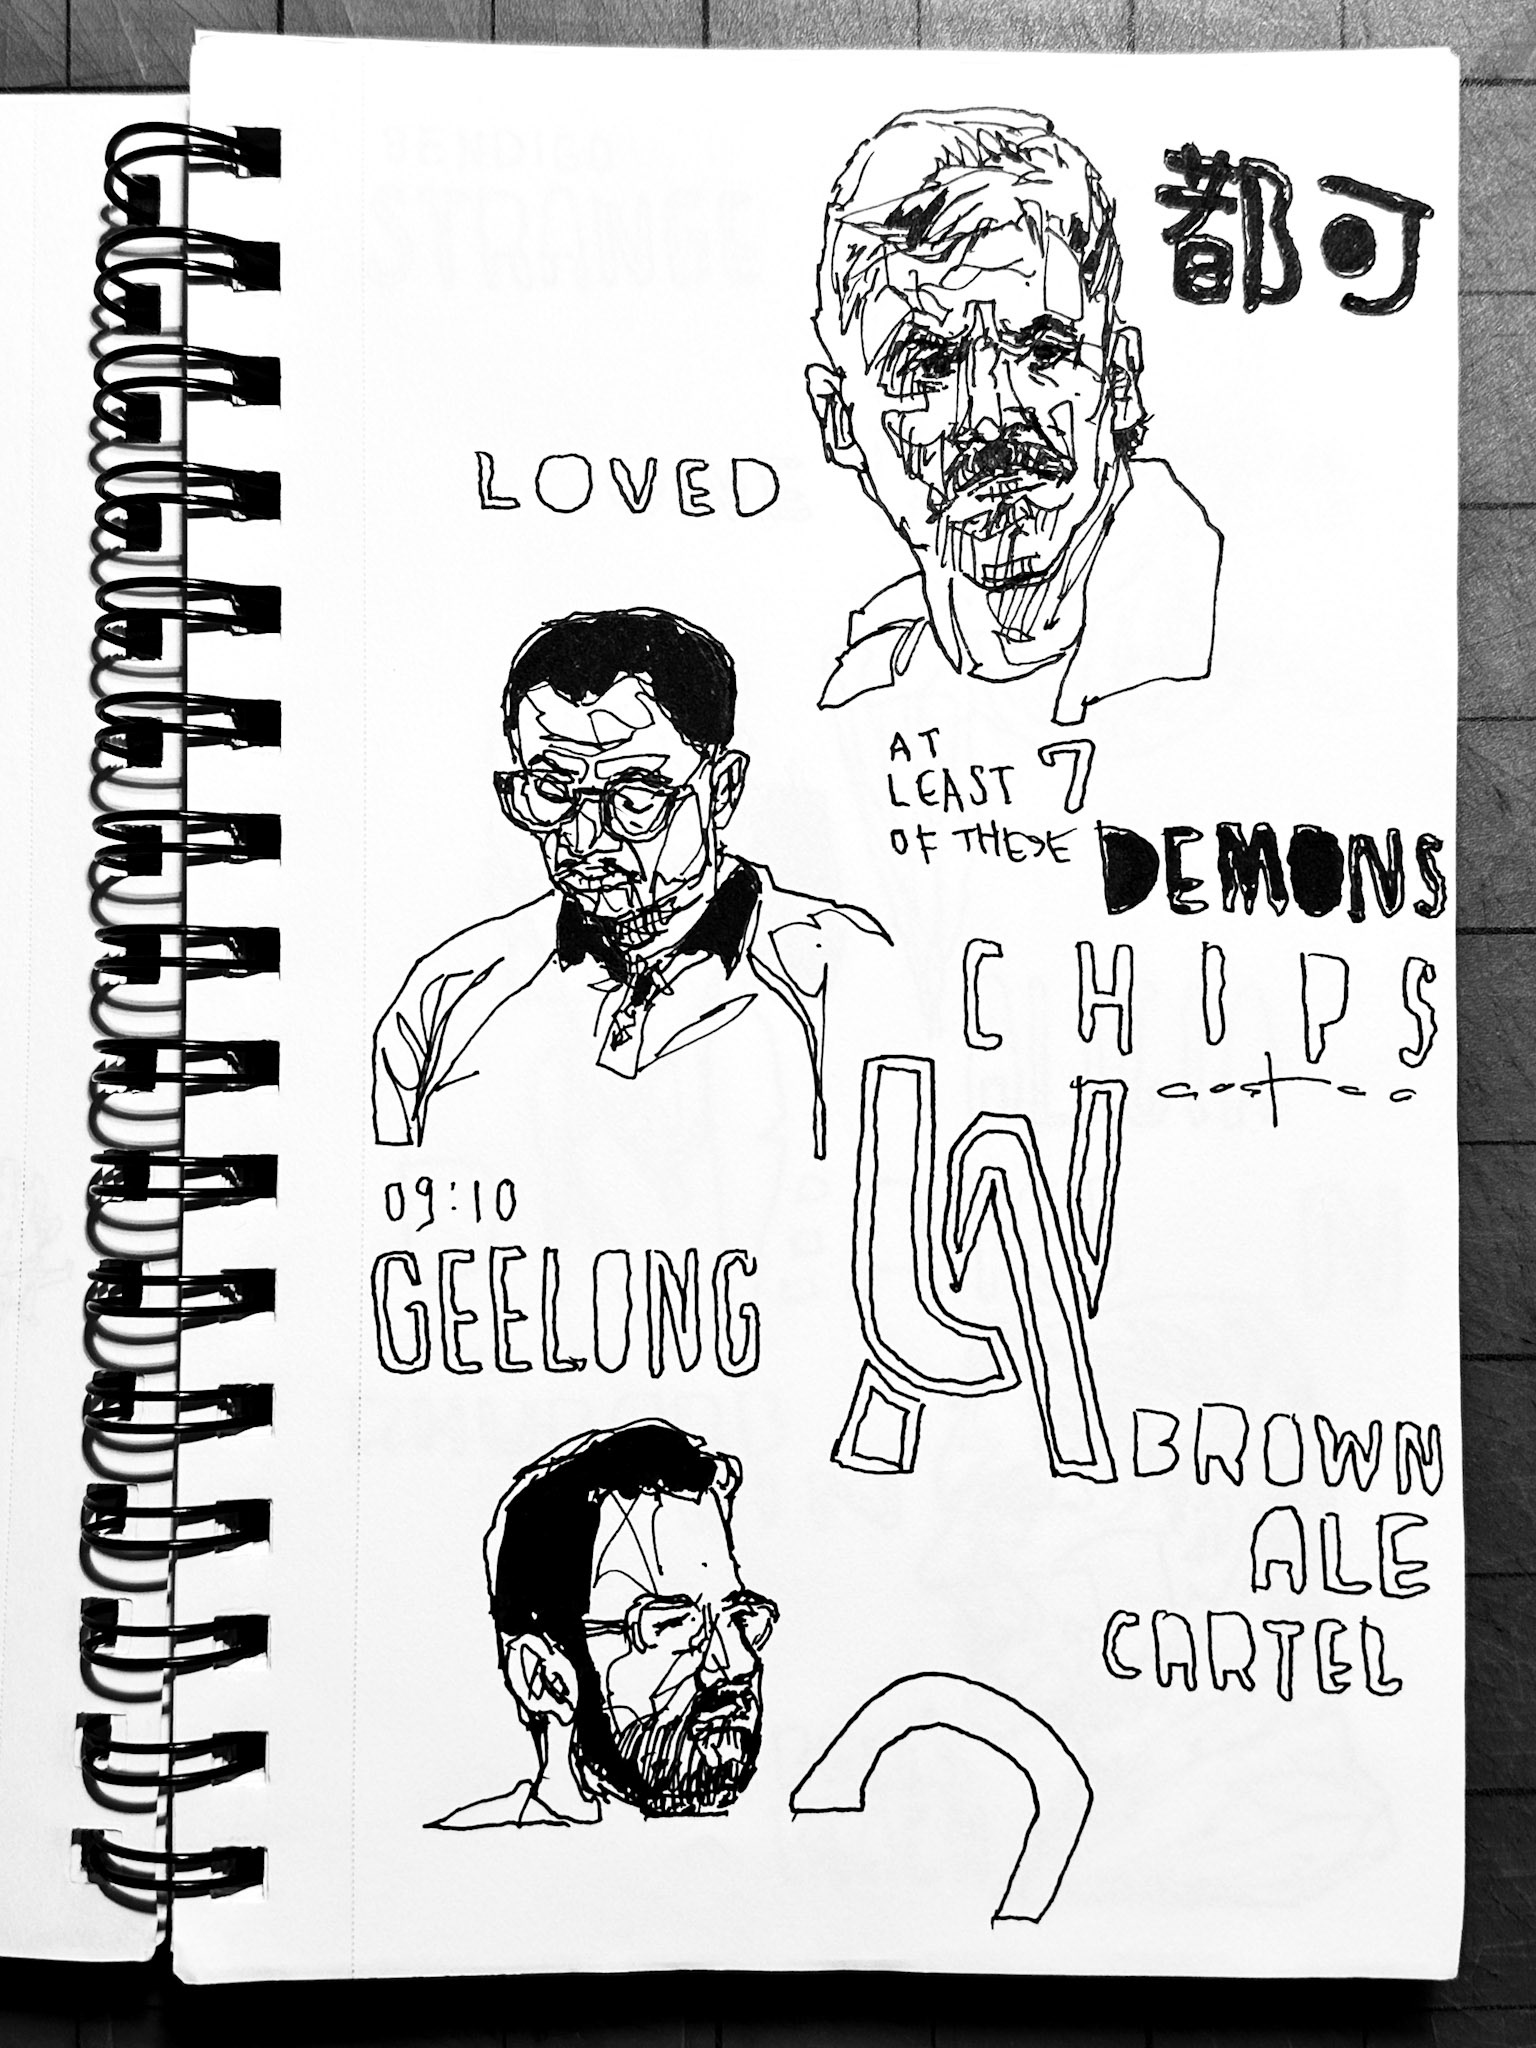 都可
LOVED
AT
LEAST 7
OF THESE DEMONS
CHIPS
09:10
GEELONG
BROWN
ALE
CARTEL